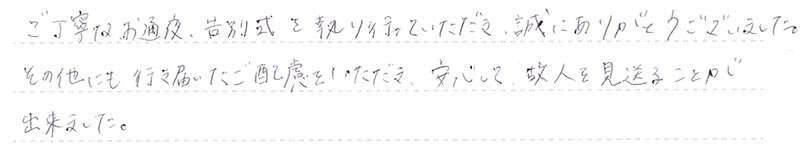 ご丁寧なお通夜、告別式を執り行っていただき、誠にありがとうございました。
その他にも行き届いたご配慮をいただき、安心して故人を見送ることが
出来ました。